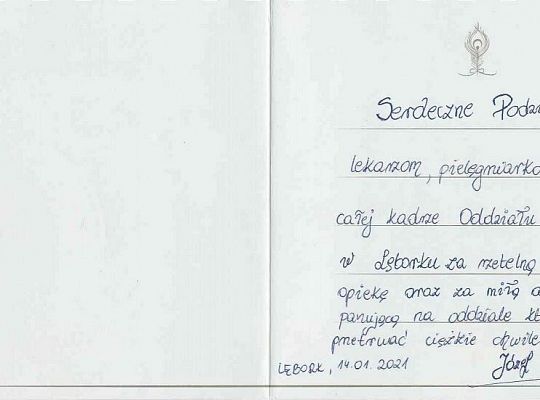 Serdeczne Podzi
lekarzom, pielęgniarko
całej kadrze Oddziału
w Lęborku za rzetelną
opiekę oraz za miłą a
panującą na oddziale kt
przetrwać ciężkie chwile
LĘBORK, 14.01.2021 Józef